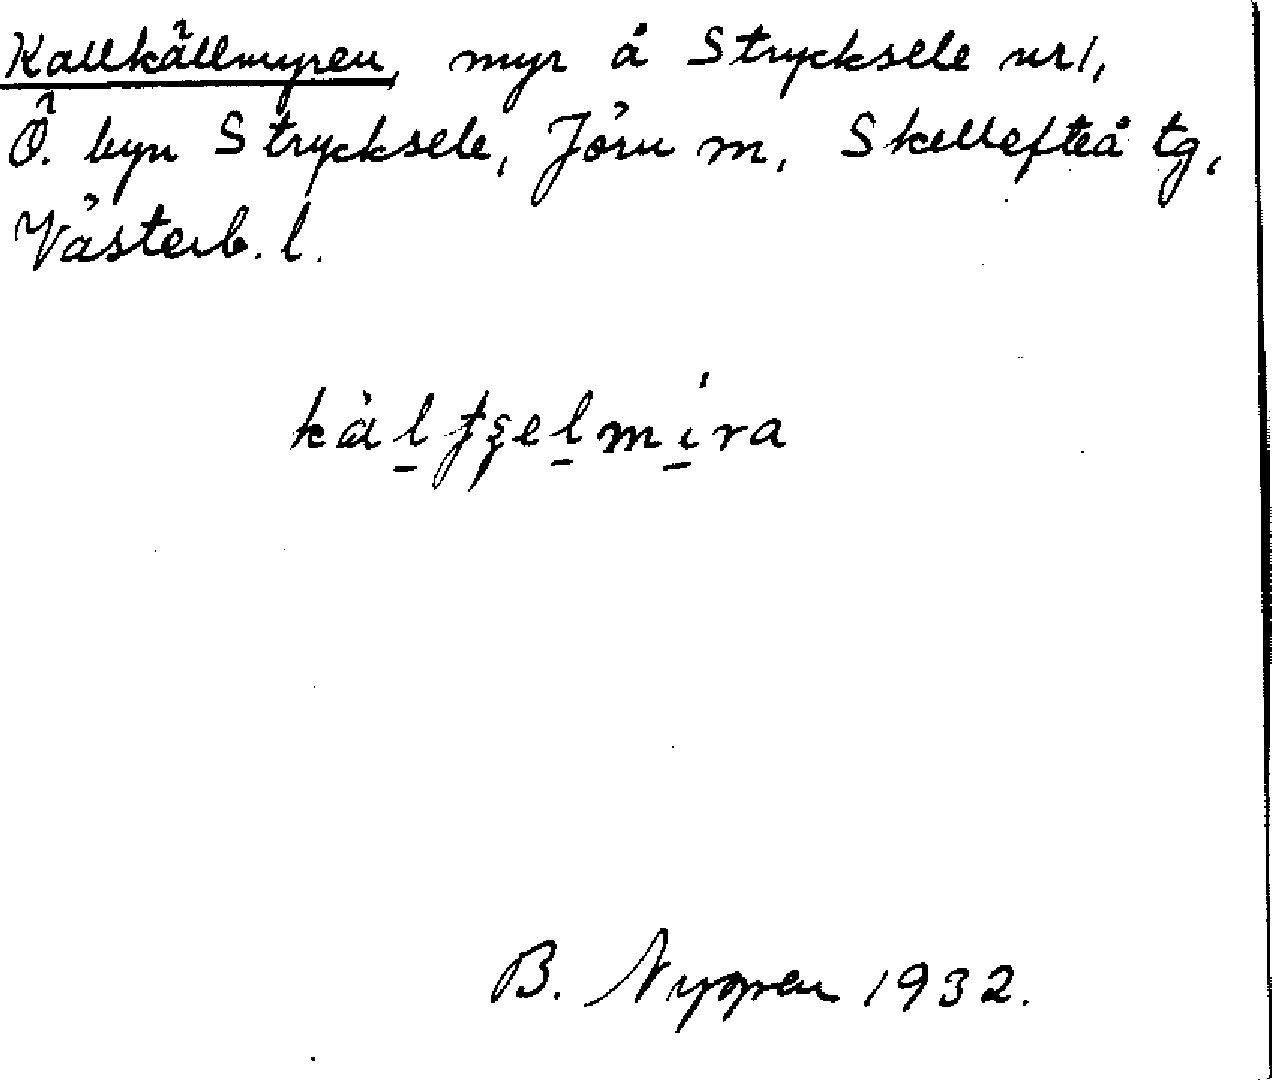 Kallkällmyren, myr å Strycksele nr 1,
Ö. byn Strycksele, Jörn m, Skellefteå tg,
Västerb. l.
B. Nyopen 1932.